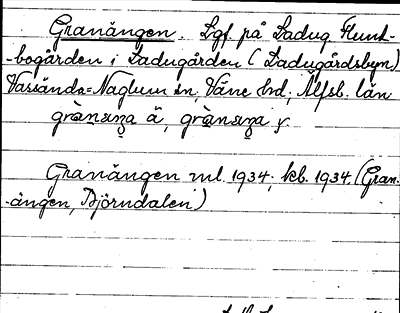 Granängen. Lgf. på Ladug. Hunt-
-bogården i Ladugården (Ladugårdsbyn)
Vassända=Naglum sn, Väne hd, Älfsb. län
granäŋa ä, granäŋa y.
Granängen ml. 1934; kb. 1934. (Gran-
-ängen, Björndalen)